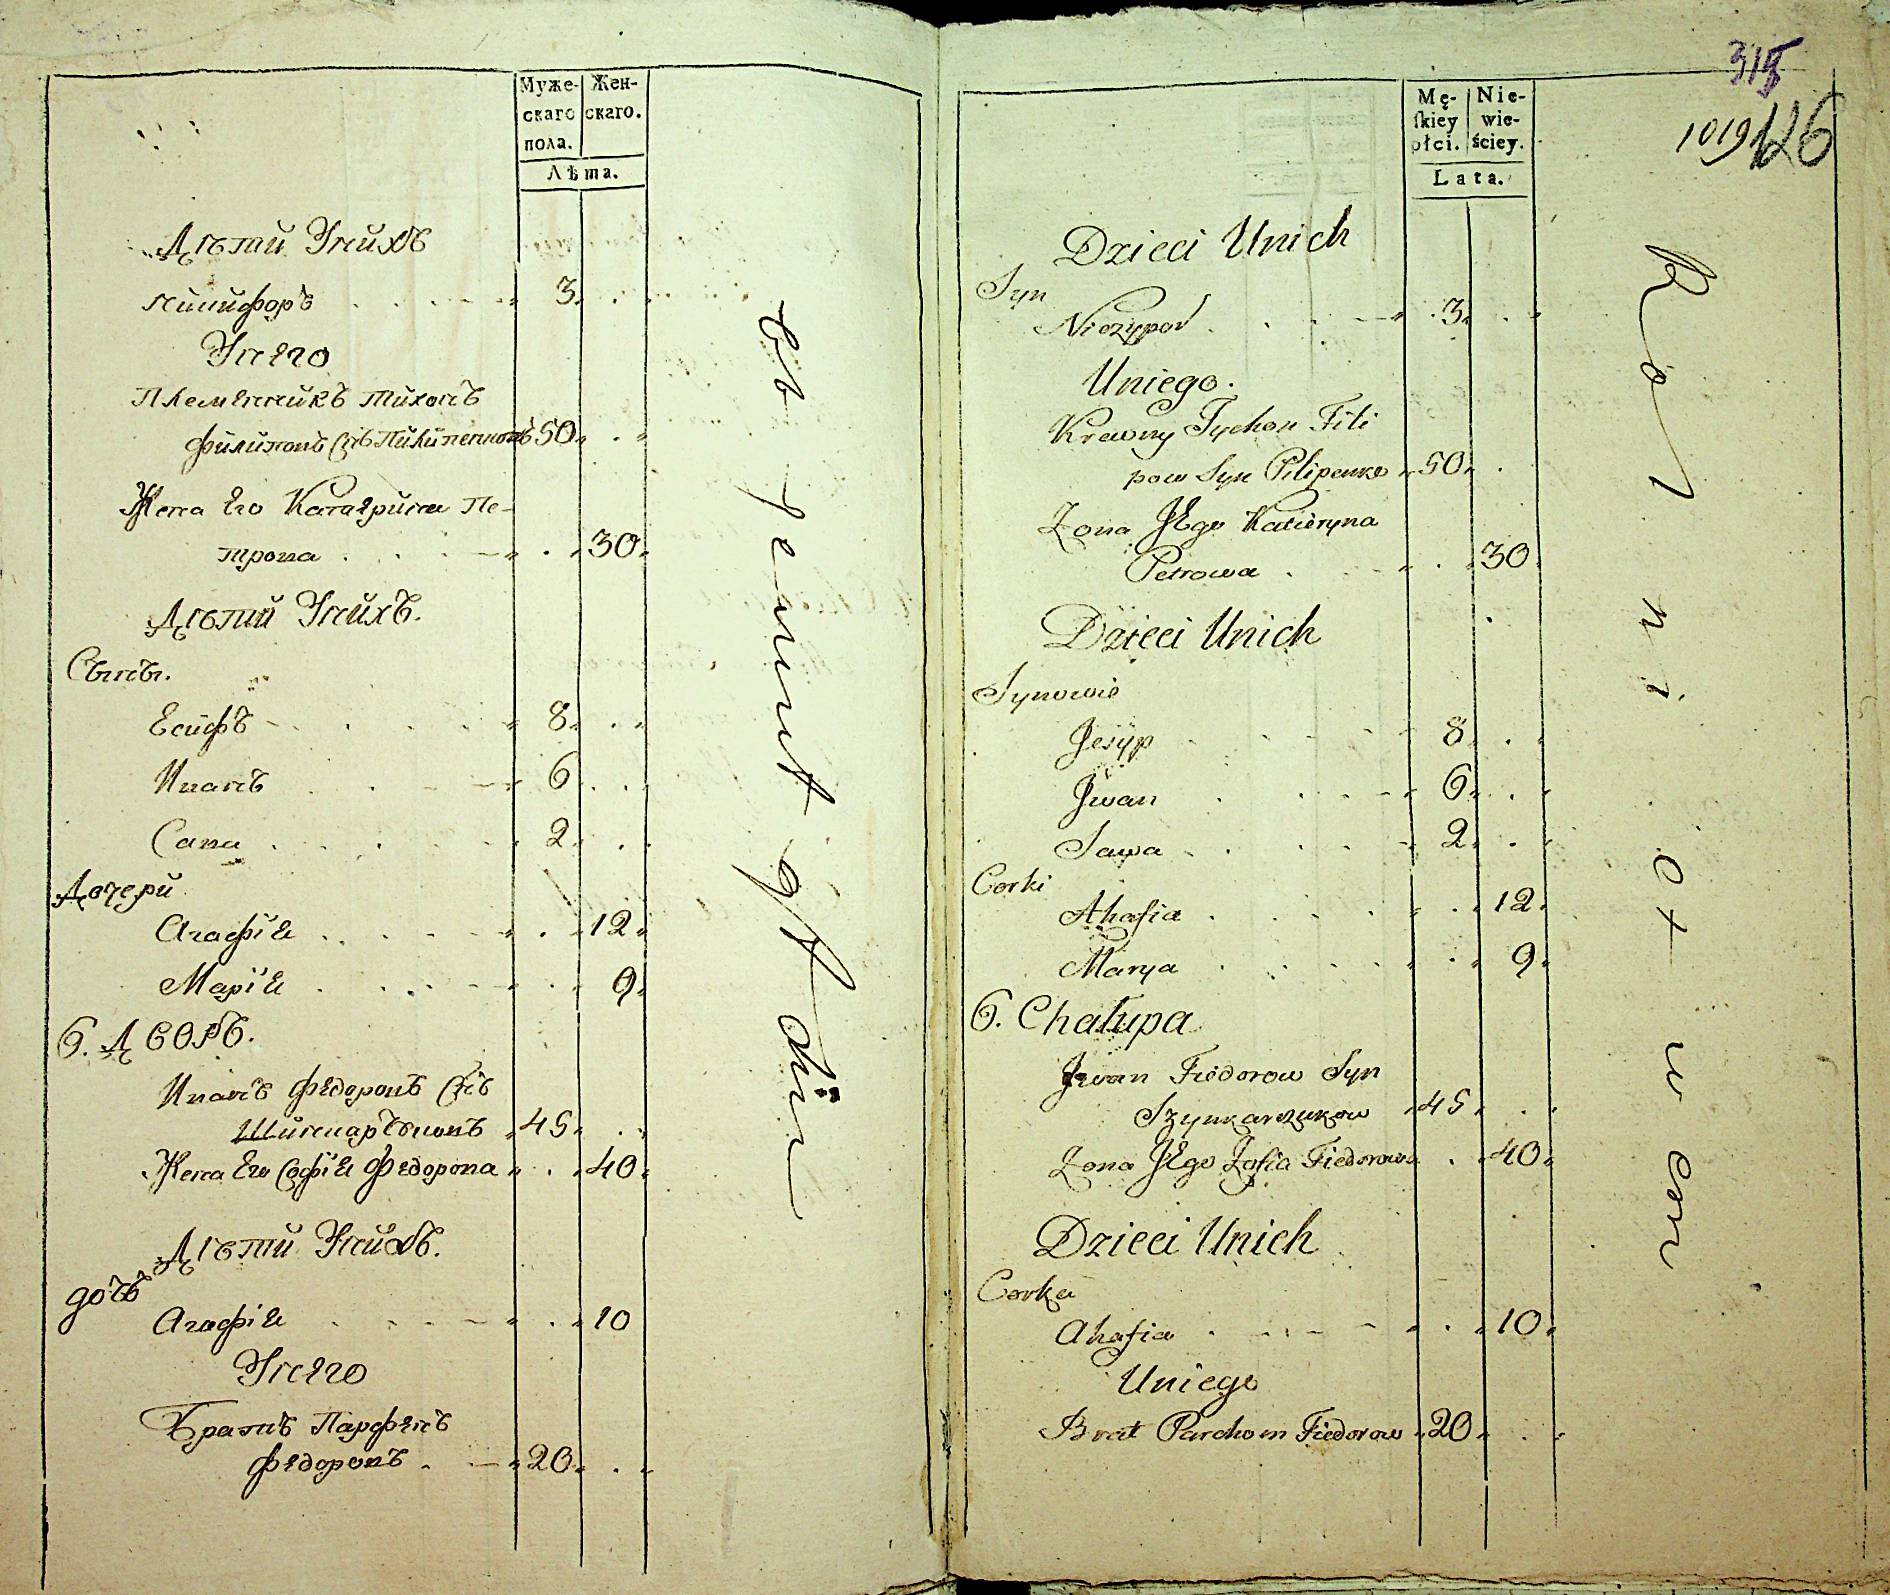 Муже-
скаго
пола.
Жен-
скаго.
Лѣта.
Дѣти Уних
Никифоръ 3
Унего
Племенникъ Тихонъ
Филиповъ Сⷩъ Пилипенковъ 50
Жена Его Катерина Пе-
трова 30
Дѣти Унихъ.
Сыны.
Есифъ 8
Иванъ 6
Сава 2
Дочери
Агафія 12
Марія 9
6. Дворъ.
Иванъ Федоровъ Сⷩъ
45
Жена Его Софія Федорова 40
Дѣти Унихъ.
дочь
Агафія 10
Унего
Братъ Парфенъ
Федоровъ 20
315
1019 126
Mę-
ſkiey
płci.
Nie-
wie-
ściey.
Lata.
Dzieci Unich
Syn
Niczypor 3
Uniego.
Krewny Tychon Fili
pow Syn Pilipenko 50
Zona JEgo Katieryna
Petrowa 30
Dzieci Unich
Synowie
Jesyp 8
Jwan 6
Sawa 2
Corki
Ahafia 12
Marya 9
6. Chałupa
Jwan Fiedorow Syn
Szynkarczukow 45
Zona JEgo Zofia Fiedorowa 40
Dzieci Unich
Corka
Ahafia 10
Uniego
Brat Parchom Fiedorow 20